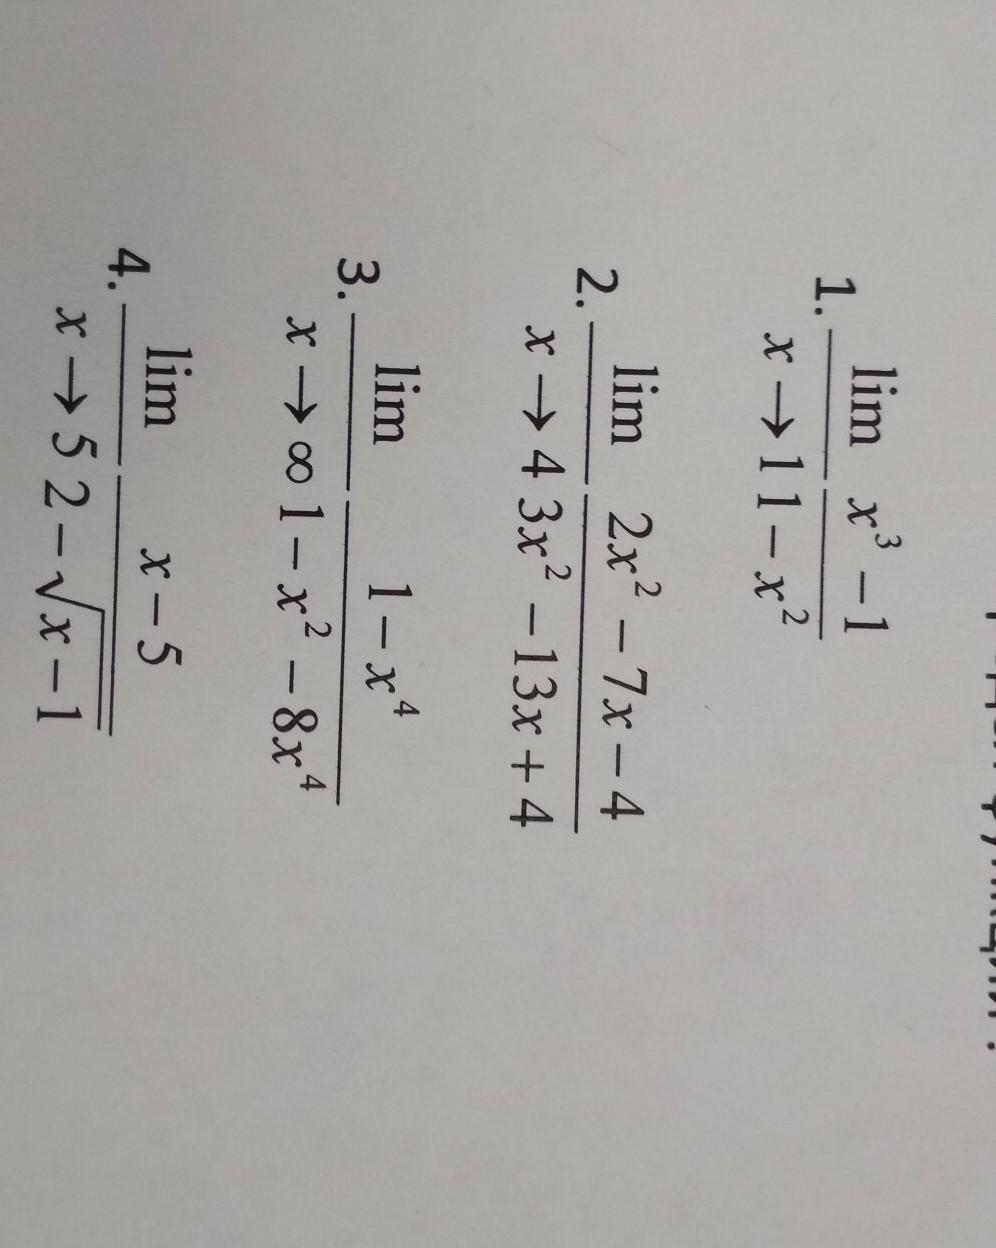 1. lim x→1 x³ − 1 / 1 − x²
2. lim x→4 2x² − 7x − 4 / 3x² − 13x + 4
3. lim x→∞ 1 − x⁴ / 1 − x² − 8x⁴
4. lim x→5 x − 5 / 2 − √x − 1